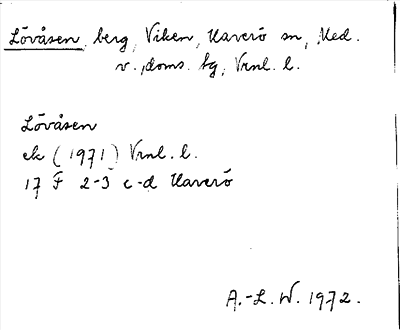 Lövåsen, berg, Viken, Haverö sn, Med.
v., doms. hg, Vrnl. l.
Lövåsen
ek (1971) Vrnl. l.
17 F 2-3 c-d Haverö
A.-L. W. 1972.